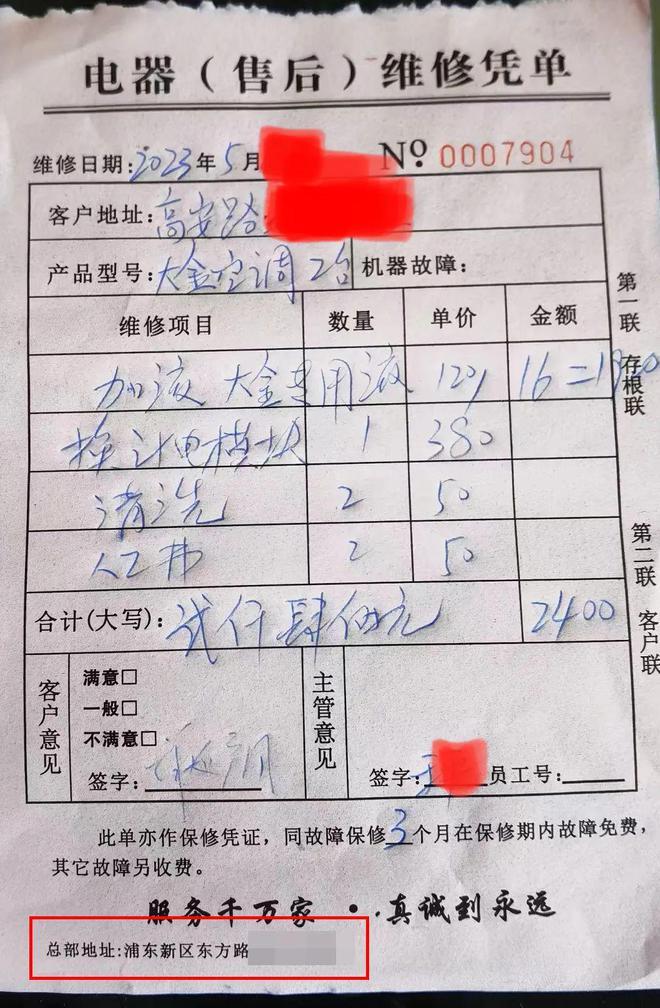 电器（售后）维修凭单
维修日期:2023年5月
№ 0007904
客户地址:高安路
产品型号:大金空调 2台 机器故障:
维修项目 数量 单价 金额
加液 大金专用液 120 16=1920
换计电模块 1 380
清洗 2 50
人工费 2 50
合计(大写): 贰仟肆佰元 2400
客户意见
满意□
一般□
不满意□
签字:
主管意见
签字: 员工号:
第一联 存根联
第二联 客户联
此单亦作保修凭证，同故障保修3个月在保修期内故障免费，
其它故障另收费。
服务千万家 · · 真诚到永远
总部地址:浦东新区东方路